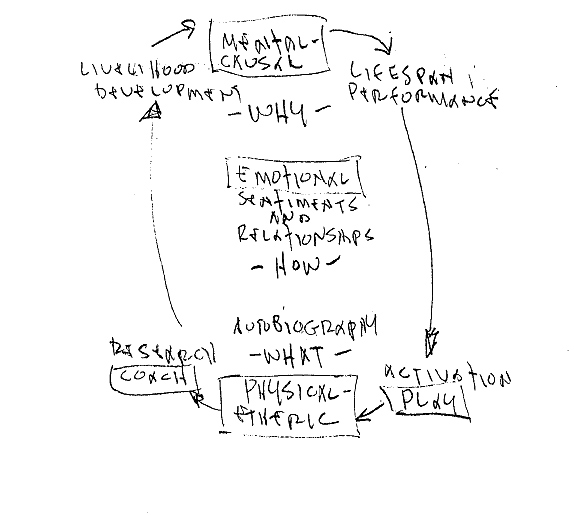 MENTAL-
CAUSAL
LIVELIHOOD
DEVELOPMENT
LIFESPAN
PERFORMANCE
-WHY-
EMOTIONAL
SENTIMENTS
AND
RELATIONSHIPS
-HOW-
AUTOBIOGRAPHY
-WHAT-
RESEARCH
COACH
PHYSICAL-
ETHERIC
ACTIVATION
PLAY